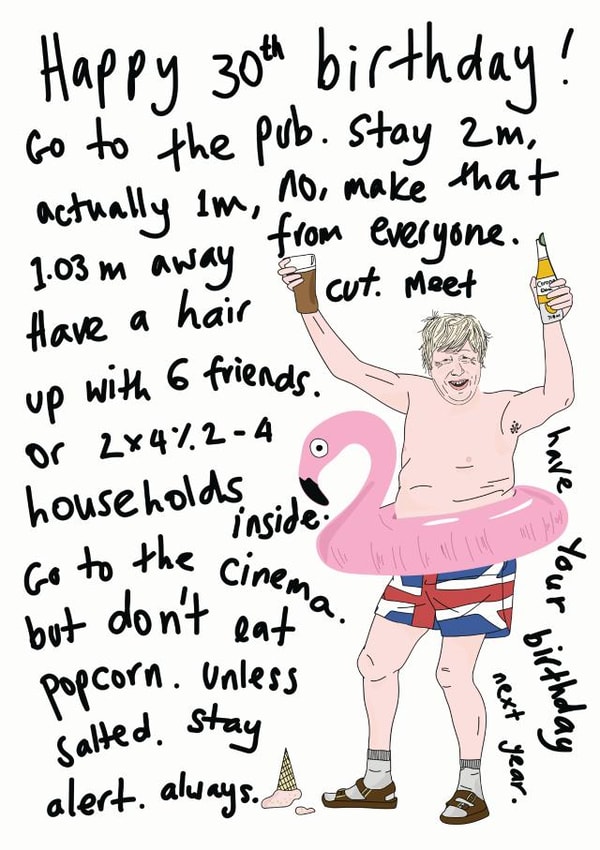 Happy 30th birthday!
Go to the pub. Stay 2m,
actually 1m, no, make that
1.03m away from everyone.
Have a hair cut. Meet
up with 6 friends.
Or 2x4%2-4
households
inside.
Go to the cinema.
but don't eat
popcorn. Unless
salted. Stay
alert. always.
have your birthday
next year.
Corona